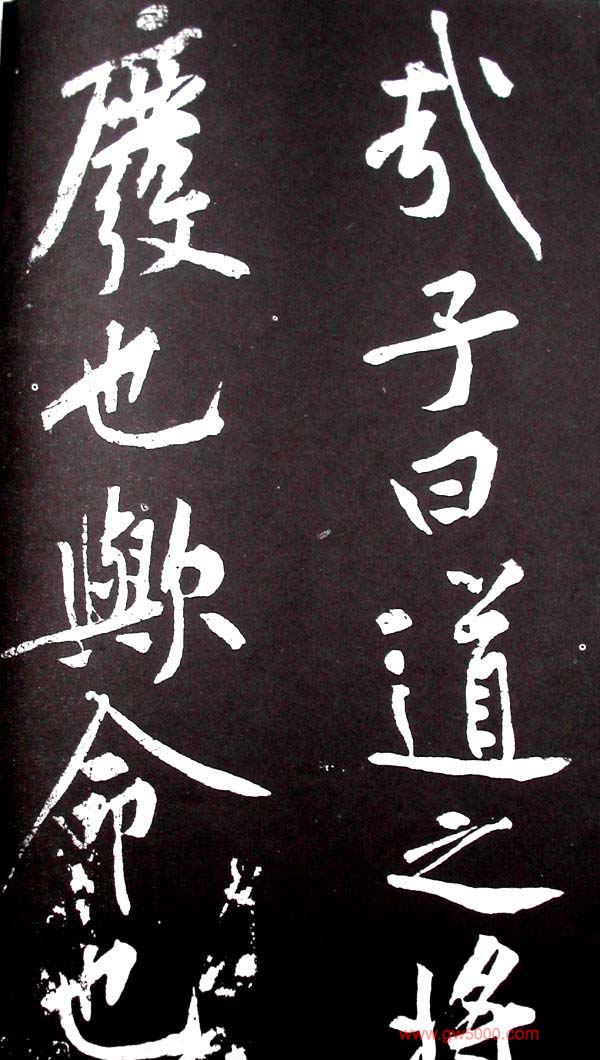 哉子曰道之将
廢也歟命也
www.gw5000.com